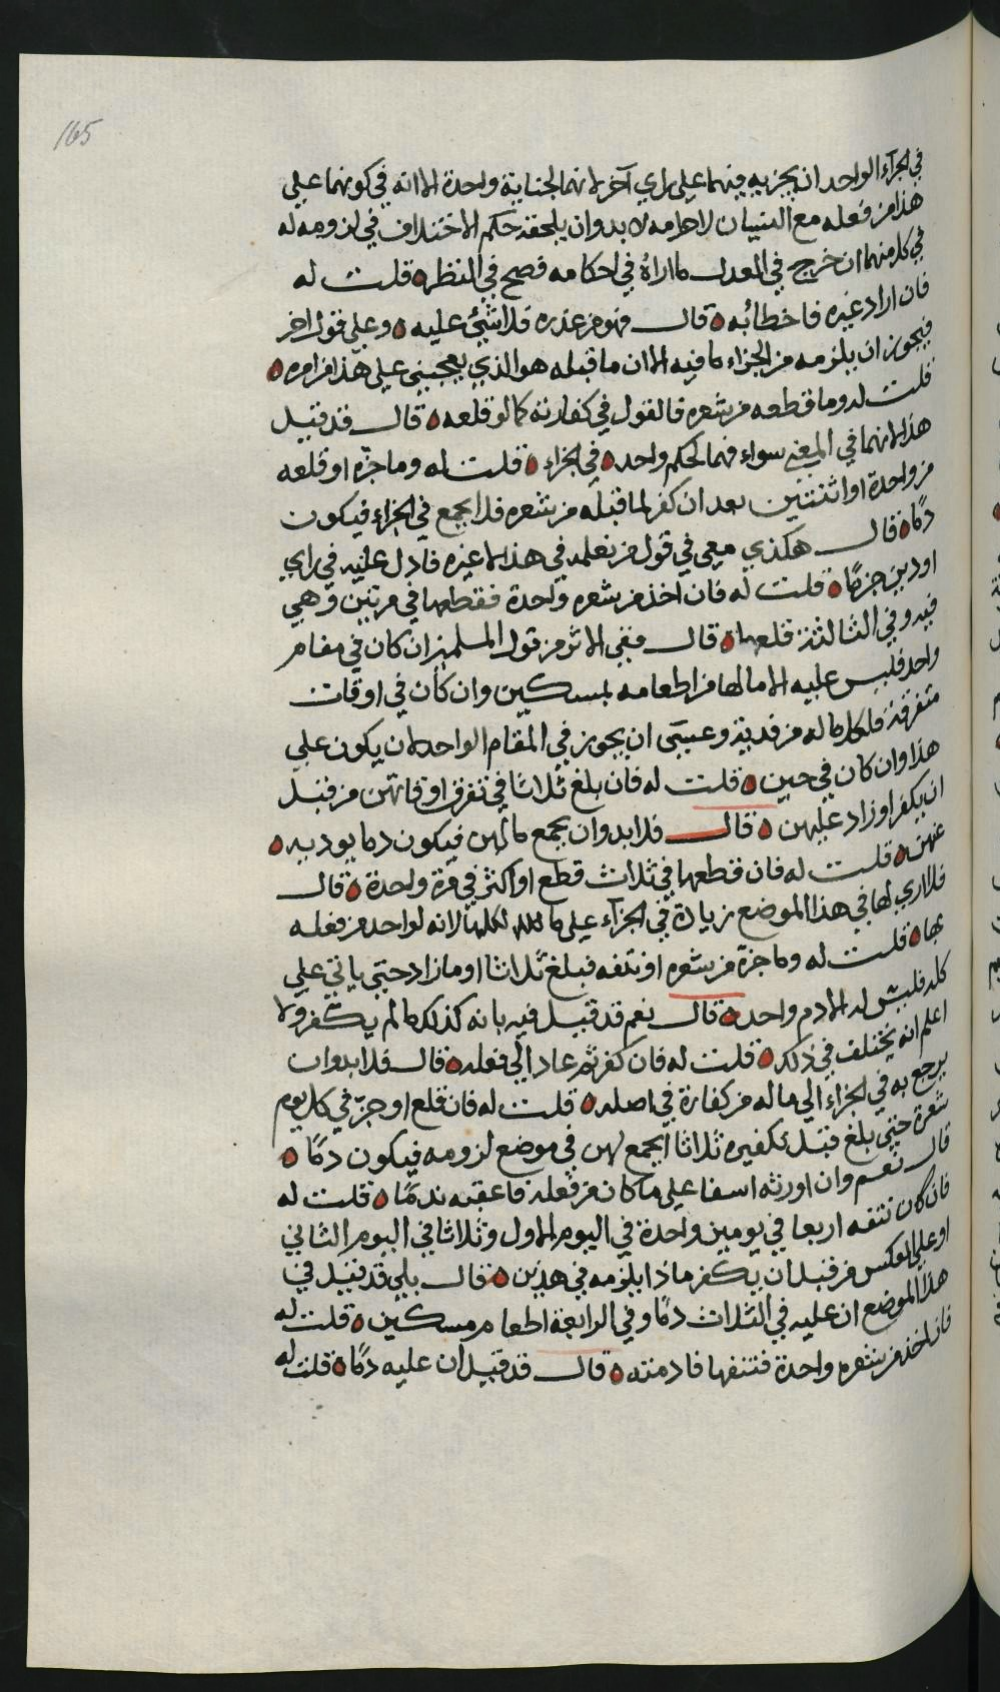 165
في الجزآء الواحد ان يجزيه فيهما على راي آخر لانهما لجناية واحدة الا انه في كونهما على
هذا من فعله مع النسيان لاحرامه لا بد وان يلحقه حكم الاختلاف في لزومه له
في كل منهما ان خرج في العدل ما اراه في احكامه فصح في النظر قلت له
فان اراد غيره فاخطأ به قال فهو من عذره فلا شئ عليه وعلى قول اخر
فيجوز ان يلزمه من الجزاء ما فيه الا ان ما قبله هو الذي يعجبني على هذا من امره
قلت له وما قطعه من شعره فالقول في كفارته كما لو قلعه قال قد قيل
هذا لانهما في المعنى سواء فهما لحكم واحد في الجزاء قلت له وما جزه او قلعه
من واحدة او اثنتين بعد ان كفر لما قبله من شعره فلا يجمع في الجزاء فيكون
دمًا قال هكذي معي في قول من نعلمه في هذا لا غيره فادل عليه في راي
او دين جزمًا قلت له فان اخذ من شعره واحدة فقطعها في مرتين وهي
فيه وفي الثالثة قلعها قال ففي الاثر من قول المسلمين ان كان في مقام
واحد فليس عليه الا ما لها من اطعامه لمسكين وان كان في اوقات
متفرقة فلكل ما له من فدية وعسى ان يجوز في المقام الواحد ان يكون على
هذا وان كان في حين قلت له فان بلغ ثلاثا في تفرق اوقاتهن من قبل
ان يكفر او زاد عليهن قال فلا بد وان يجمع ما لهن فيكون دما يوديه
عنهن قلت له فان قطعها في ثلاث قطع او اكثر في مرة واحدة قال
فلا اري لها في هذا الموضع زيادة في الجزآء على ما لكلها لانه لواحد من فعله
بها قلت له وما جزه من شعره او نتفه فبلغ ثلاثا او ما زاد حتى ياتي على
كله فليس له الا دم واحد قال نعم قد قيل فيه بانه كذلك ما لم يكفر ولا
اعلم انه يختلف في ذلك قلت له فان كفر ثم عاد الي فعله قال فلا بد وان
يرجع به في الجزاء الي ما له من كفارة في اصله قلت له فان قلع او جز في كل يوم
شعرة حتى بلغ قبل تكفيره ثلاثا ايجمع لهن في موضع لزومه فيكون دمًا
قال نعم وان اورثه اسفا على ما كان من فعله فاعقبه ندمًا قلت له
فان كان نتفه اربعا في يومين واحدة في اليوم الاول وثلاثا في اليوم الثاني
او على العكس من قبل ان يكفر ماذا يلزمه في هذين قال بلى قد قيل في
هذا الموضع ان عليه في الثلاث دمًا وفي الرابعة اطعام مسكين قلت له
فان اخذ من شعره واحدة فنتفها فادمته قال قد قيل ان عليه دمًا قلت له